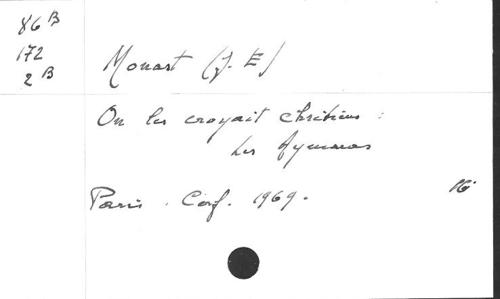 86 B
172
2 B
Monast (J. E)
On les croyait chrétiens :
Les Aymaras
Paris . Cerf . 1969 .
16°